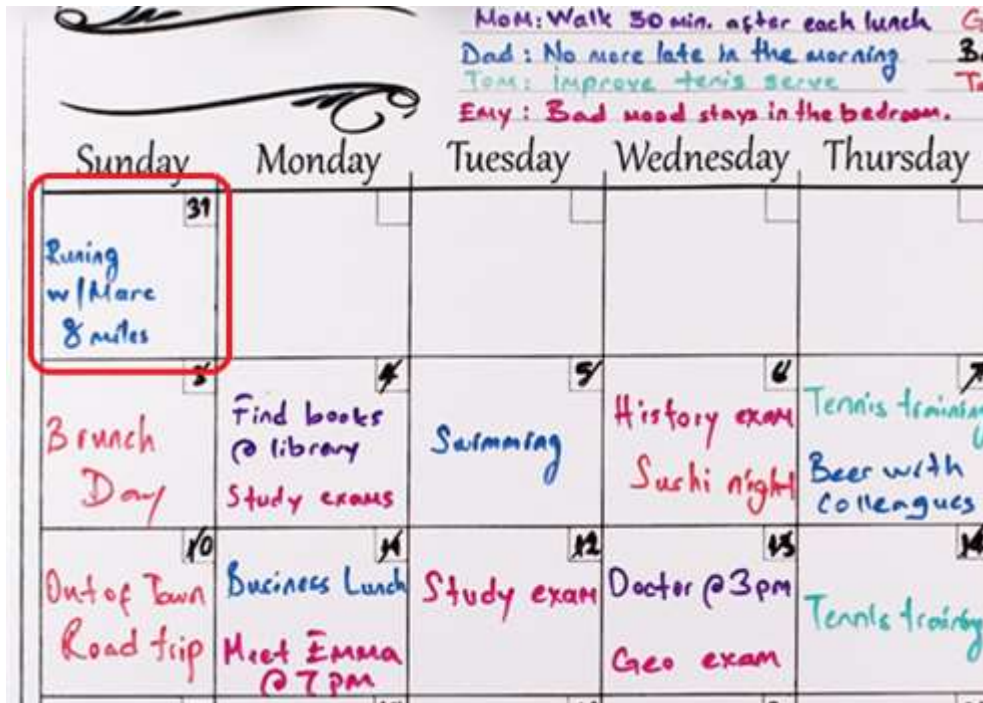 MoM: Walk 30 min. after each lunch G
Dad: No more late in the morning B
Tom: improve tenis serve T
Emy: Bad mood stays in the bedroom.
Sunday Monday Tuesday Wednesday Thursday
31
Runing
w/Marc
8 miles
3 4 5 6 7
Brunch
Day
Find books
@ library
Study exams
Swimming
History exam
Suchi night
Tennis training
Beer with
Colleagues
10 11 12 13 14
Out of Town
Road trip
Business Lunch
Meet Emma
@ 7 pm
Study exam
Doctor @ 3 pm
Geo exam
Tennis training